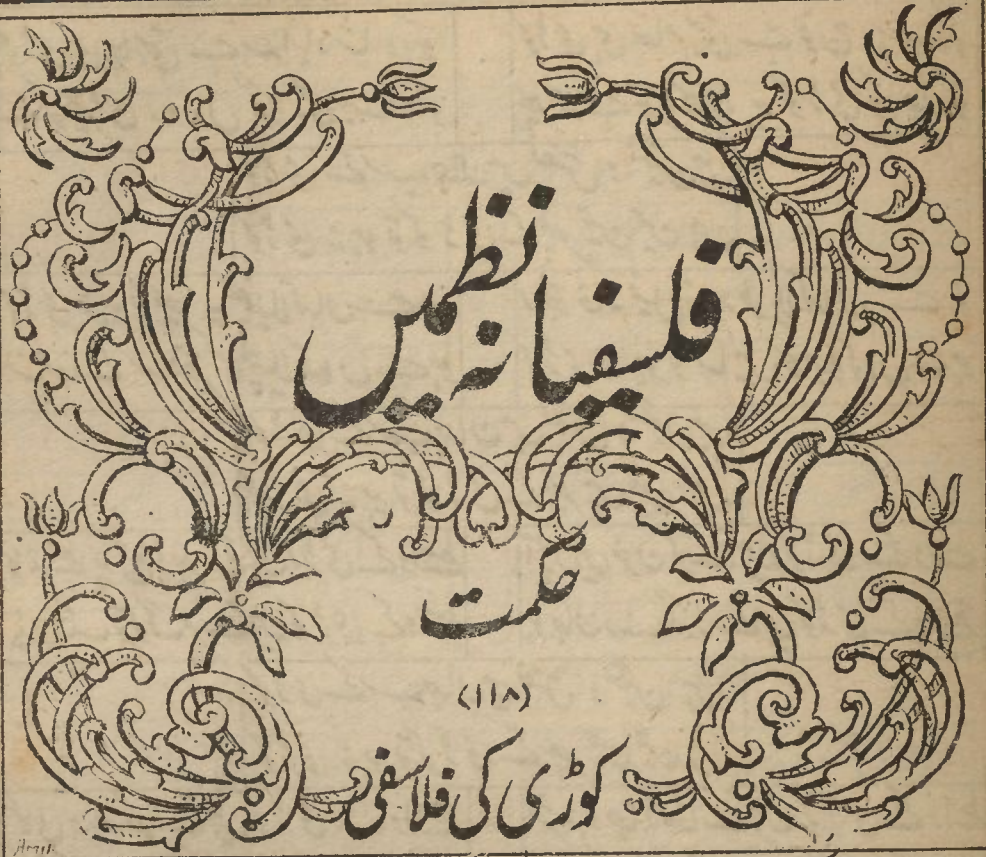 فلسفیانہ نظمیں
حکمت
(۱۱۸)
کوڑی کی فلاسفی